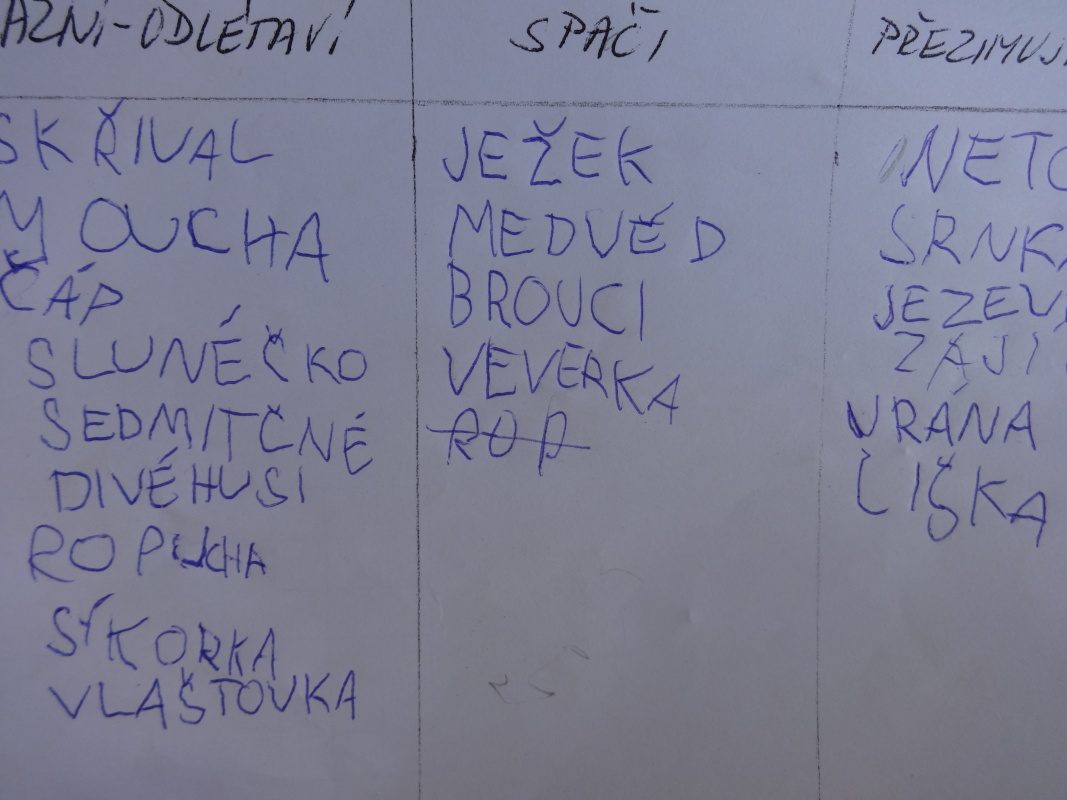 AZNÍ-ODLÉTAVÍ
SKŘIVAL
MOUCHA
ČÁP
SLUNÉČKO
SEDMITČNÉ
DIVÉ HUSI
ROPUCHA
SÝKORKA
VLAŠTOVKA
SPÁČI
JEŽEK
MEDVĚD
BROUCI
VEVERKA
ROP
PŘEZIMUJ
NETO
SRNKA
JEZEV
ZAJÍ
VRÁNA
LIŠKA